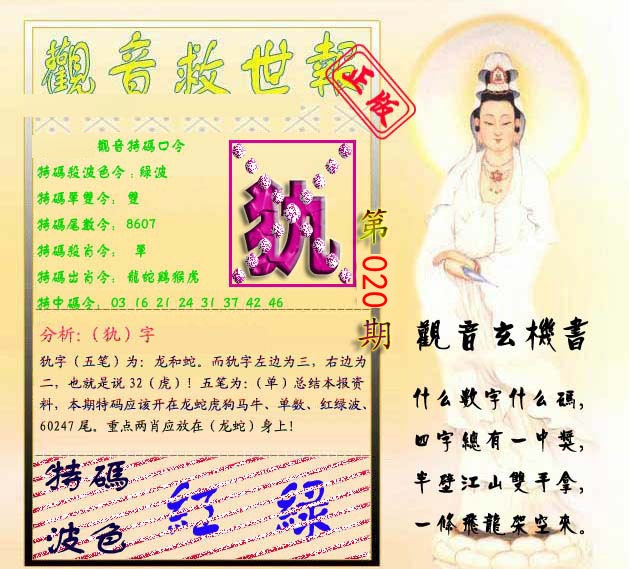 觀音救世報
正版
觀音特碼口令
特碼殺波色令:綠波
特碼單雙令: 雙
特碼尾數令: 8607
特碼殺肖令: 單
特碼出肖令: 龍蛇鷄猴虎
特中碼令: 03 16 21 24 31 37 42 46
犰
第020期
分析:(犰)字
犰字(五笔)为:龙和蛇。而犰字左边为三,右边为
二,也就是说32(虎)!五笔为:(单)总结本报资
料,本期特码应该开在龙蛇虎狗马牛、单数、红绿波、
60247尾。重点两肖应放在(龙蛇)身上!
特碼
波色
紅 綠
觀音玄機書
什么數字什么碼,
四字總有一中獎,
半壁江山雙手拿,
一條飛龍架空來。